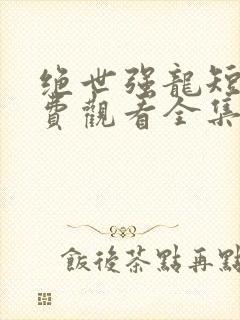 绝世强龍短
費觀看全集
飯後茶點再點